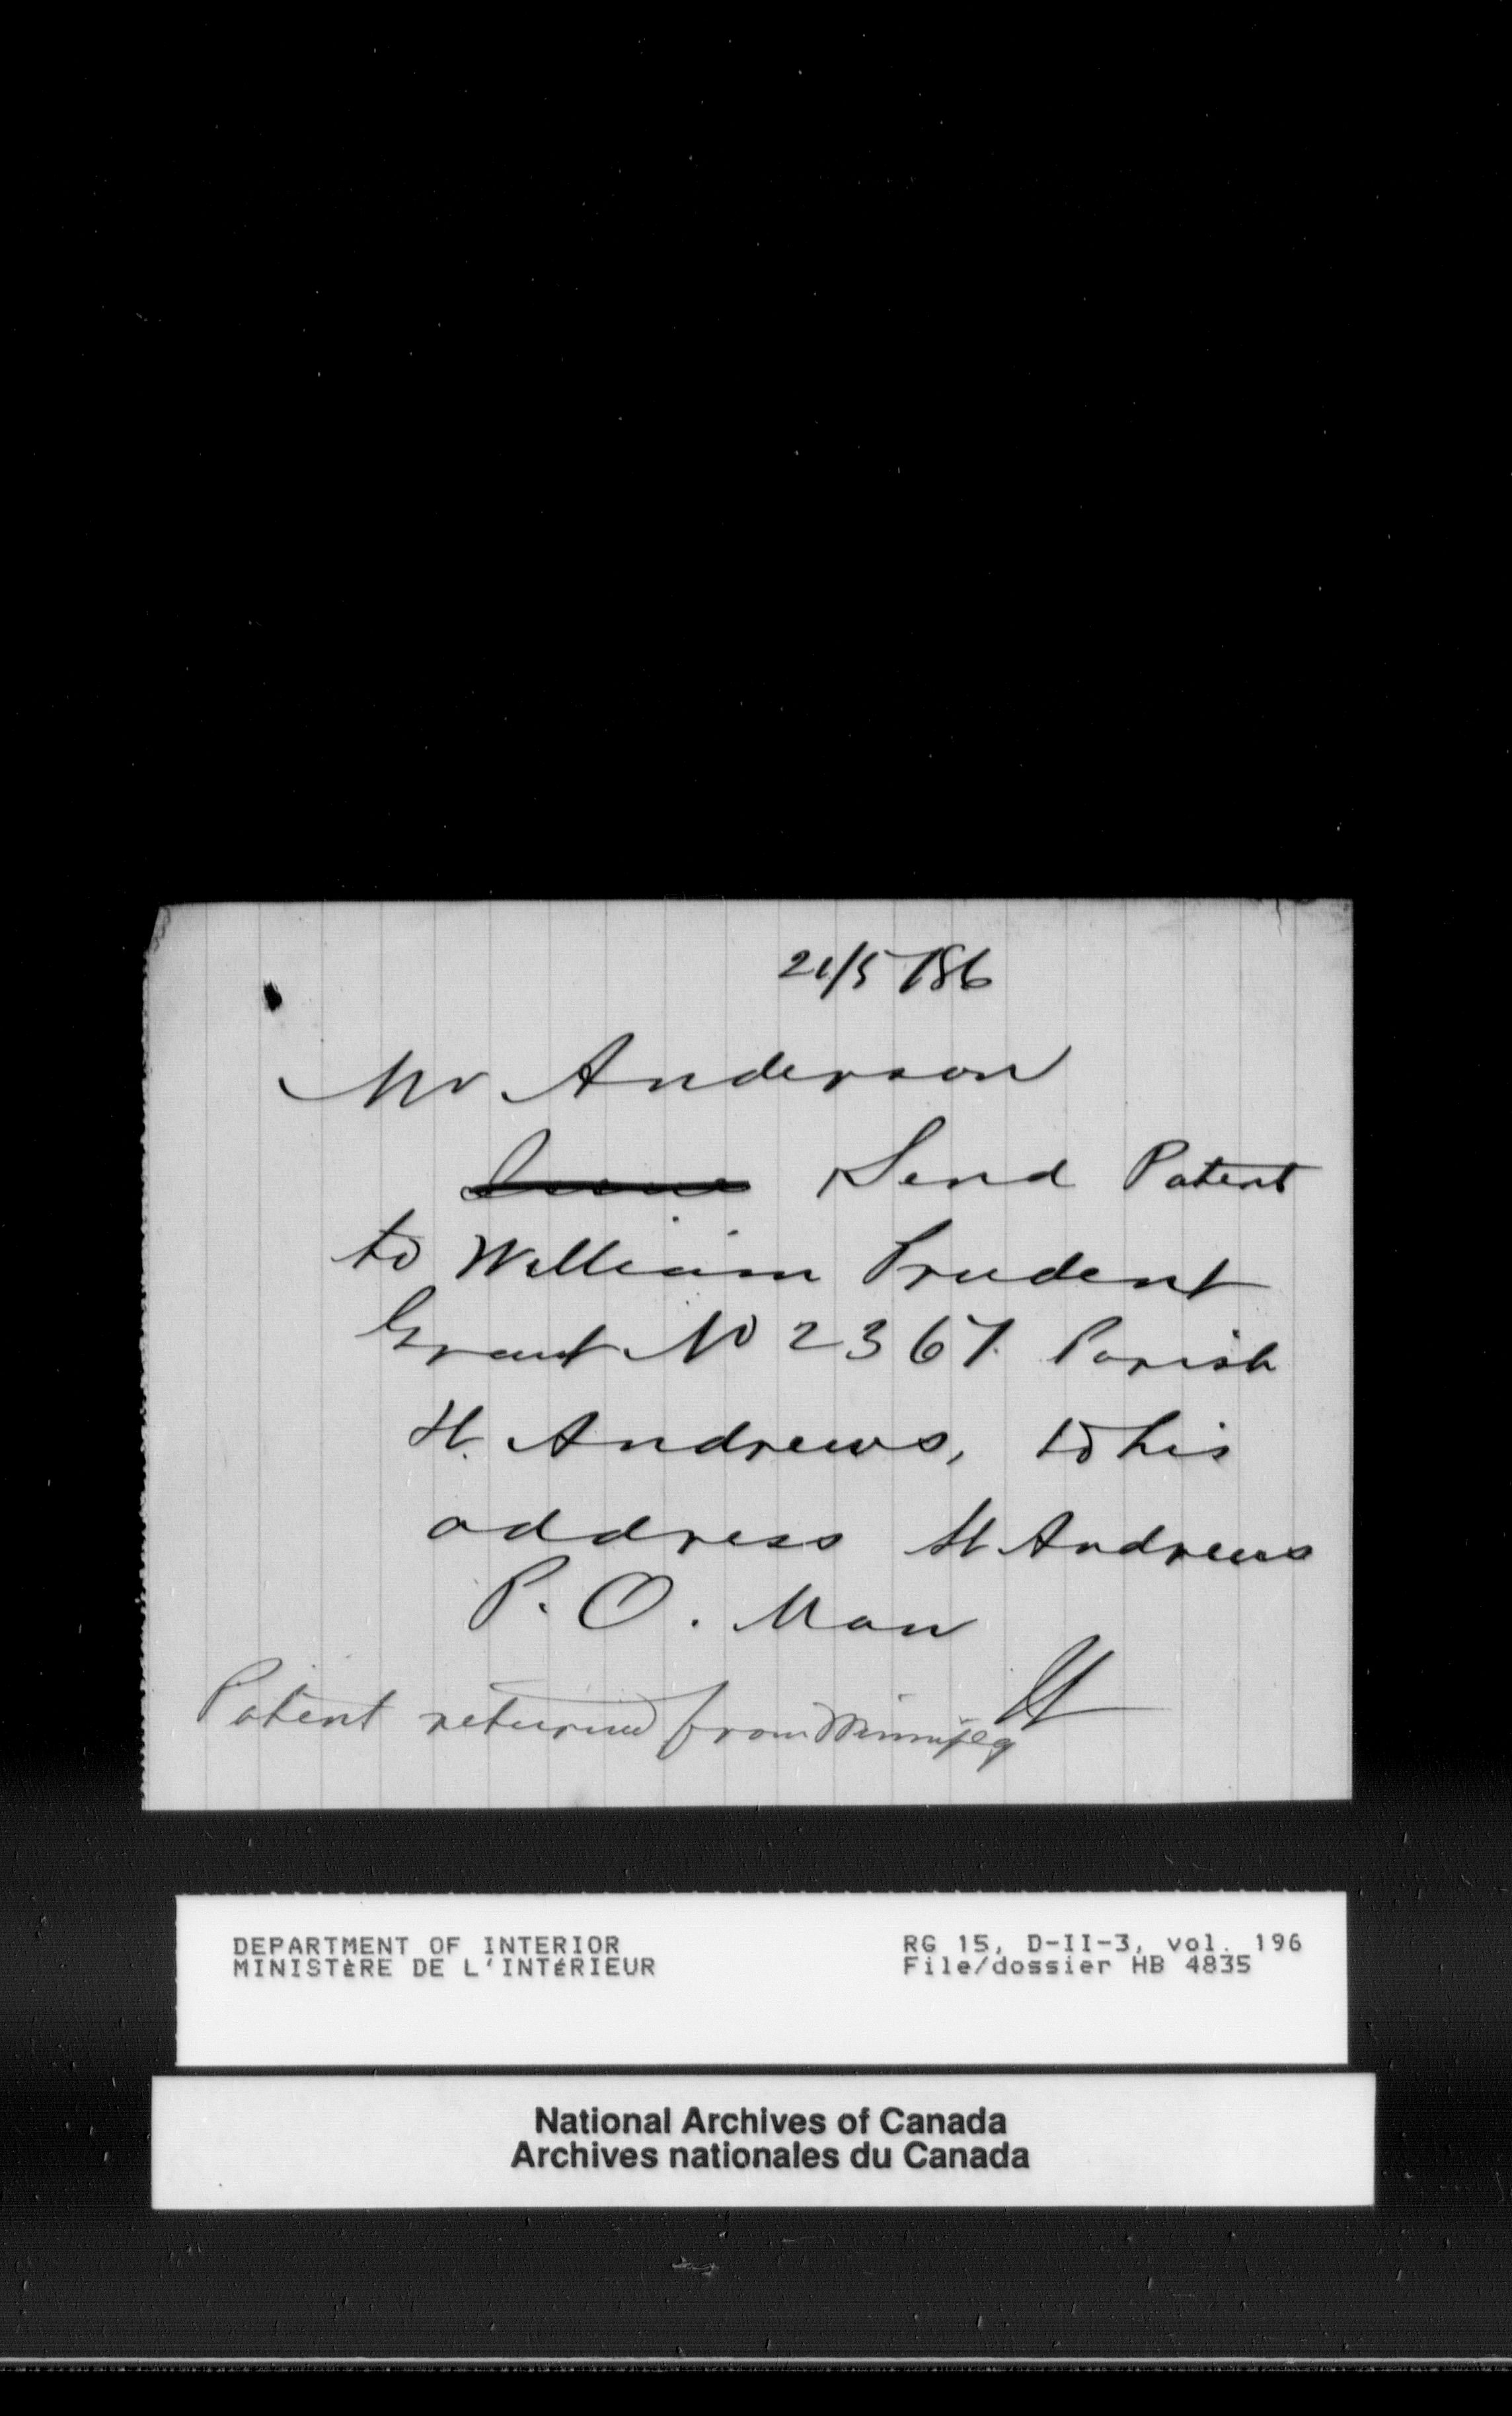 21/5/86
Mr Anderson
Send Patent
to William Prudent
Grant No 2367. Parish
St. Andrews, to his
address St Andrews
P. O. Man
Patent returned from Winnipeg
DEPARTMENT OF INTERIOR
MINISTÈRE DE L'INTÉRIEUR
RG 15, D-II-3, vol. 196
File/dossier HB 4835
National Archives of Canada
Archives nationales du Canada